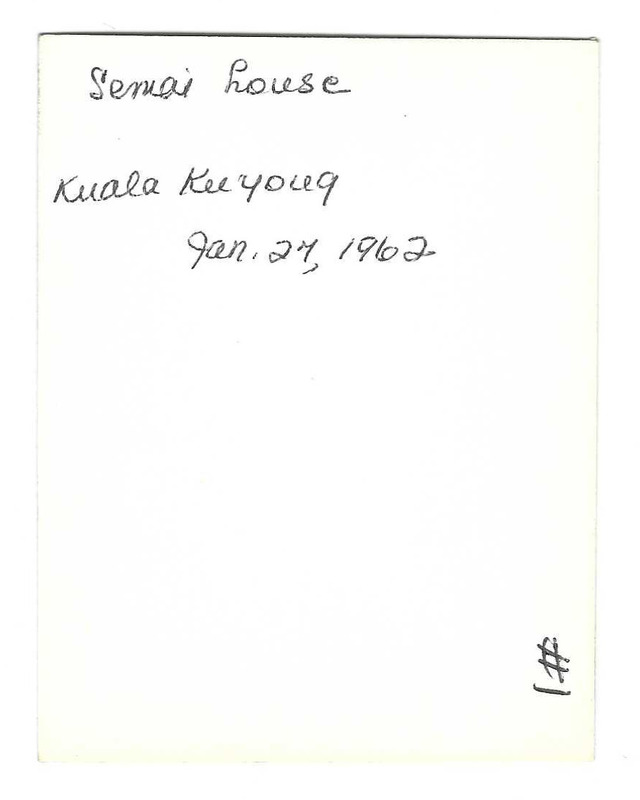 Semai house
Kuala Kuyong
Jan. 27, 1962
#1